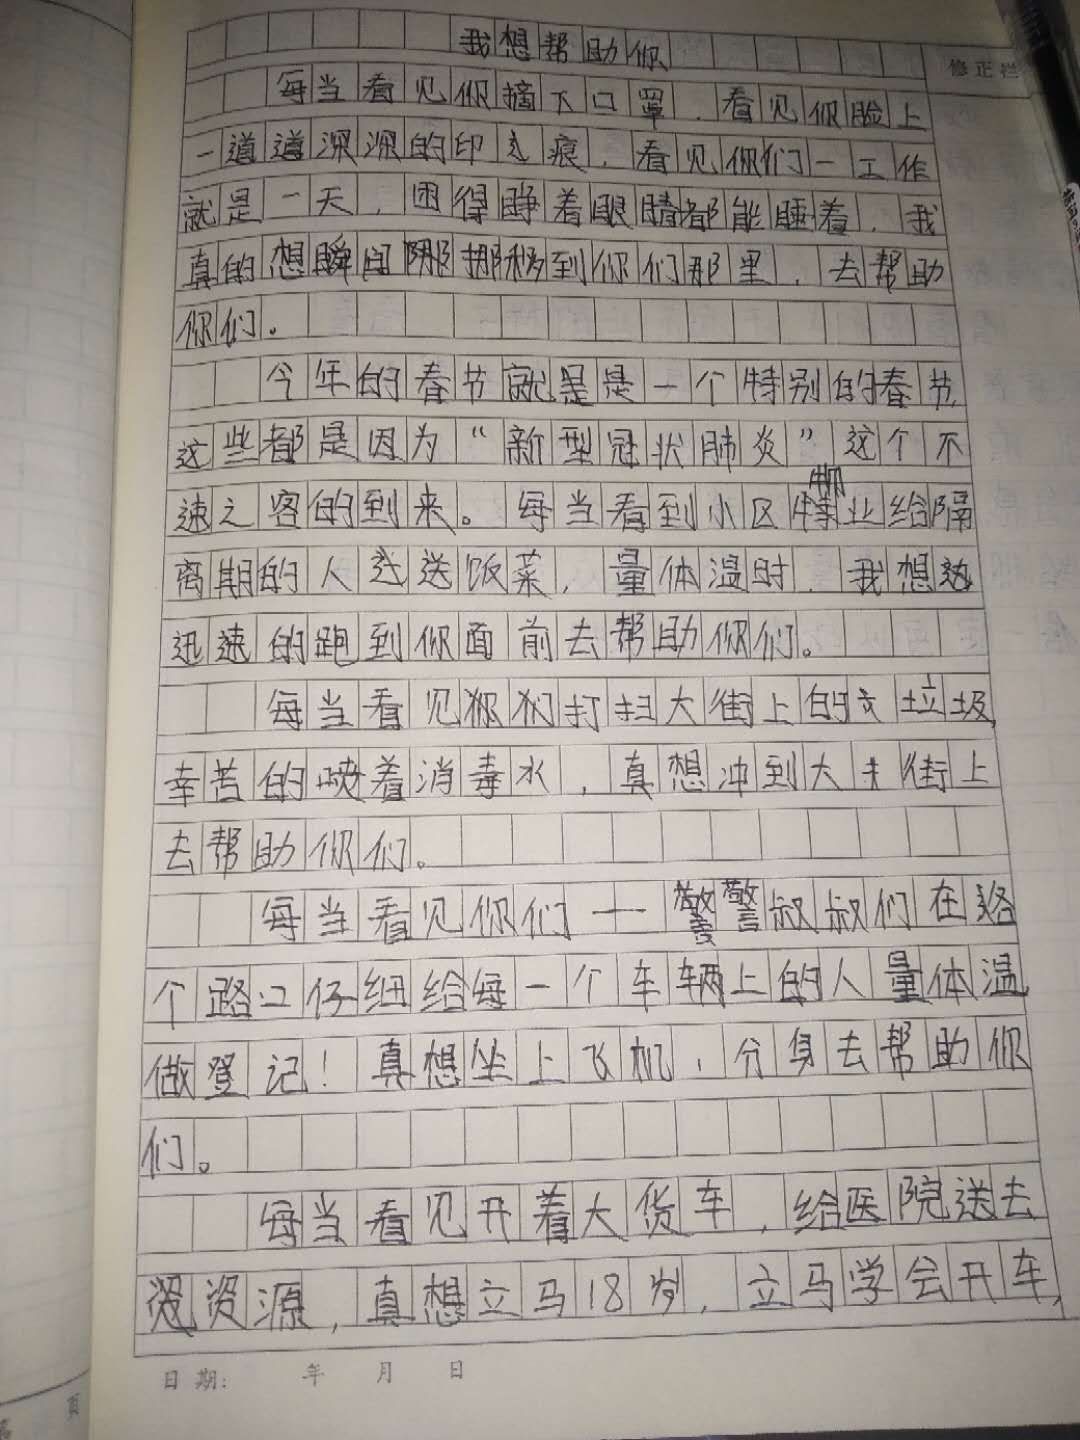 我想帮助你
修正栏
每当看见你摘下口罩，看见你脸上
一道道深深的印痕，看见你们一工作
就是一天，困得睁着眼睛都能睡着，我
真的想瞬间挪移到你们那里，去帮助
你们。
今年的春节就是是一个特别的春节，
这些都是因为“新型冠状肺炎”这个不
速之客的到来。每当看到小区物业给隔
离期的人送饭菜，量体温时，我想
迅速的跑到你面前去帮助你们。
每当看见你们打扫大街上的垃圾，
幸苦的喷着消毒水，真想冲到大街上
去帮助你们。
每当看见你们——警叔叔们在
个路口仔细给每一个车辆上的人量体温
做登记！真想坐上飞机，分身去帮助你
们。
每当看见开着大货车，给医院送去
资源，真想立马18岁，立马学会开车，
日期： 年 月 日
页